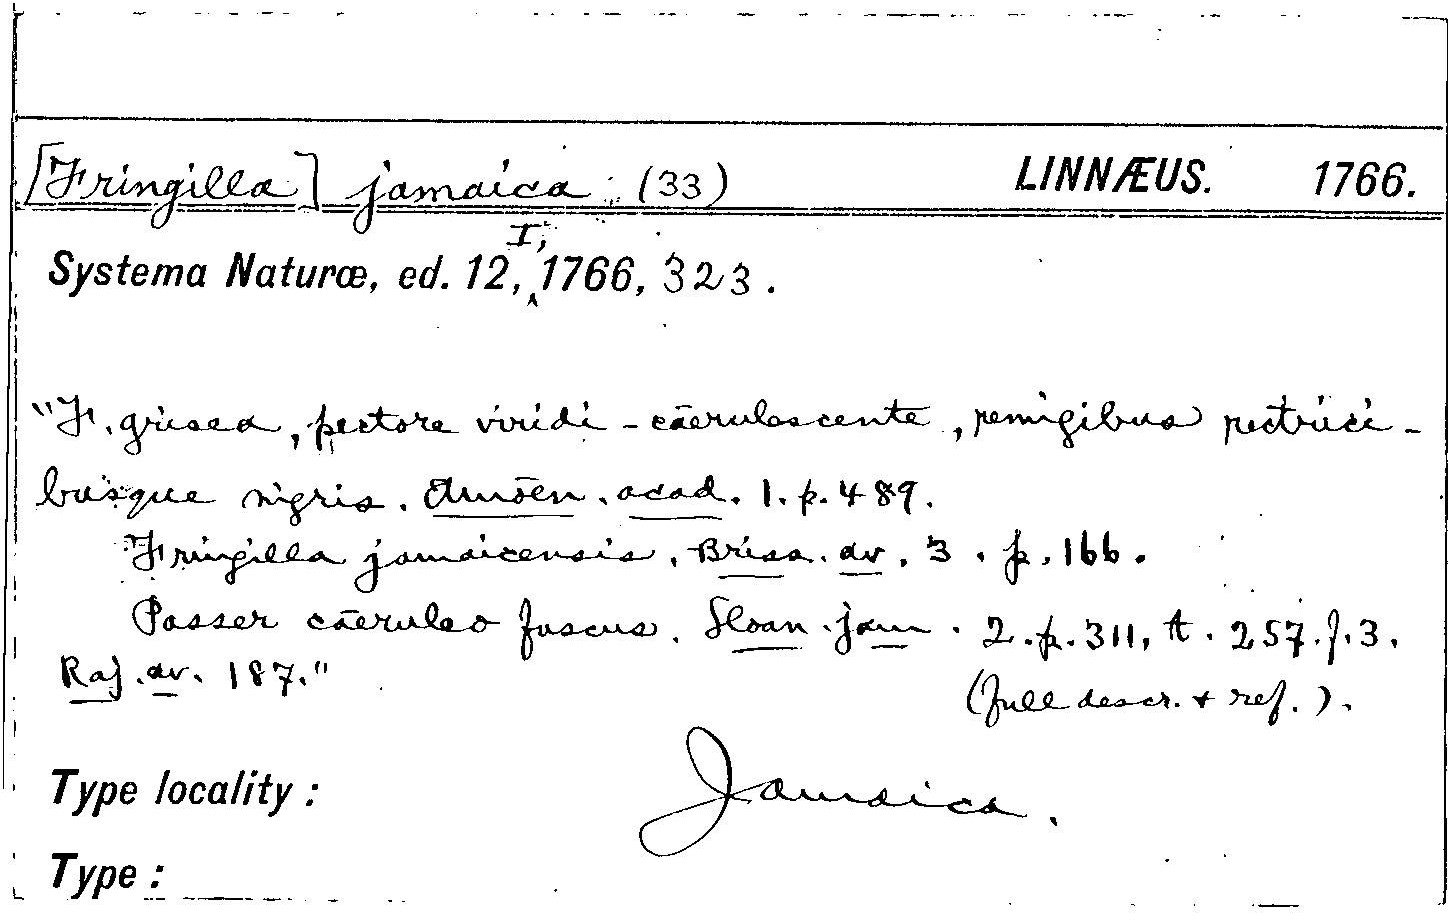 [Fringilla] jamaica (33) LINNÆUS. 1766.
I,
Systema Naturæ, ed. 12, ‸ 1766, 323.
"F. grisea, pectore viridi-cāerulescente, remigibus rectrici-
busque nigris. Amōen. acad. 1. p. 489.
Fringilla jamaicensis. Briss. av. 3. p. 166.
Passer cāeruleo fuscus. Sloan. jam. 2. p. 311, t. 257. f. 3.
Raj. av. 187."
(full descr. + ref.).
Type locality: Jamaica.
Type: